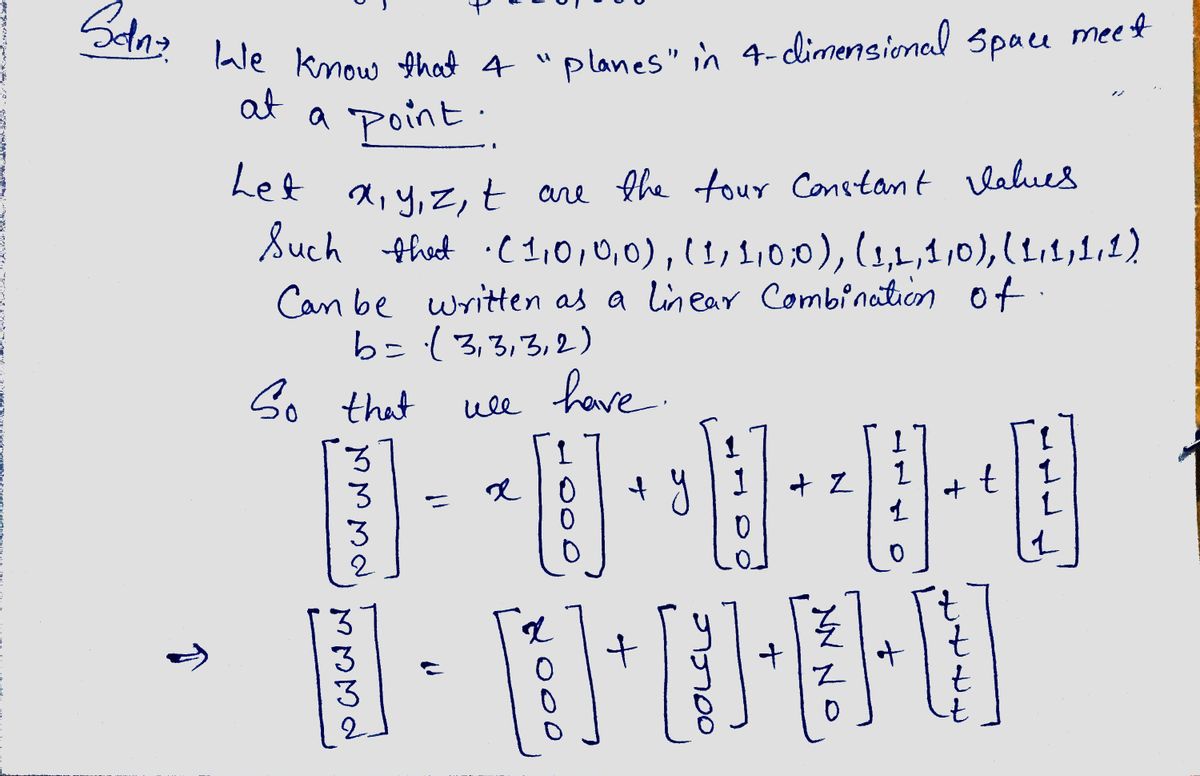 Soln→ We know that 4 "planes" in 4-dimensional space meet
at a point.
Let x, y, z, t are the four constant values
Such that (1,0,0,0), (1,1,0,0), (1,1,1,0), (1,1,1,1)
Can be written as a linear Combination of
b = (3,3,3,2)
So that we have.
[3 3 3 2] = x [1 0 0 0] + y [1 1 0 0] + z [1 1 1 0] + t [1 1 1 1]
⇒ [3 3 3 2] = [x 0 0 0] + [y y 0 0] + [z z z 0] + [t t t t]